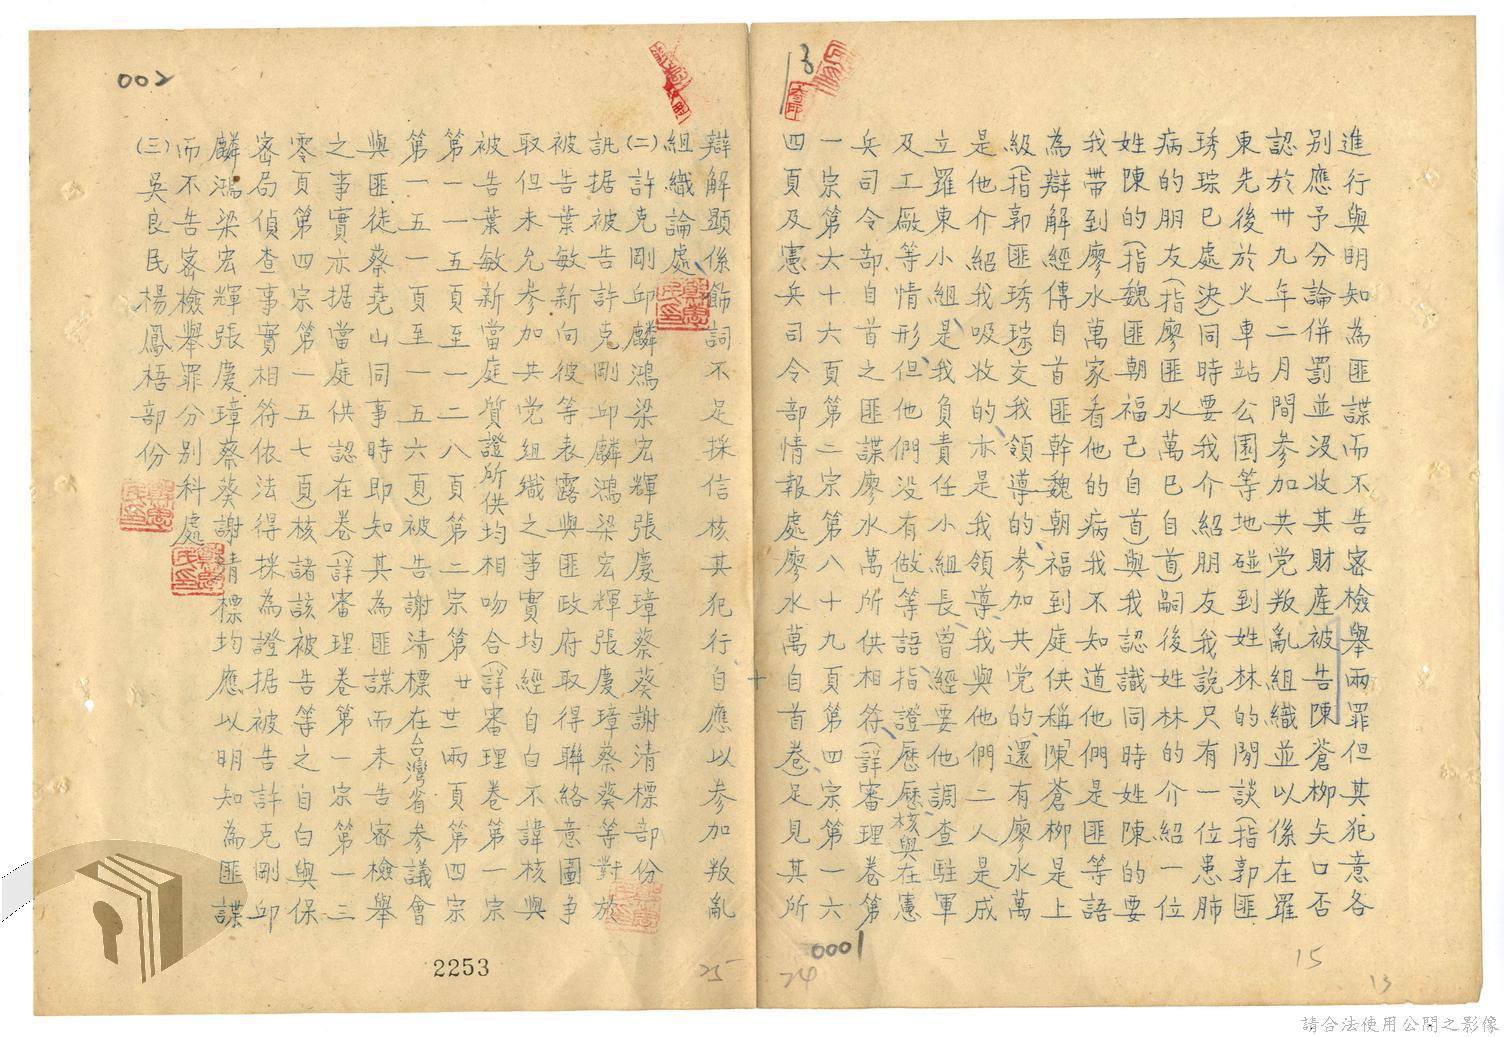 進行與明知為匪諜而不告密檢舉兩罪但其犯意各
別應予分論併罰並没收其財產被告陳蒼柳矢口否
認於卅九年二月間參加共党叛亂組織並以係在羅
東先後於火車站公園等地碰到姓林的閒談(指郭匪
琇琮已處决)同時要我介紹朋友我說只有一位患肺
病的朋友(指廖匪水萬已自首)嗣後姓林的介紹一位
姓陳的(指魏匪朝福已自首)與我認識同時姓陳的要
我帶到廖水萬家看他的病我不知道他們是匪等語
為辯解經傳自首匪幹魏朝福到庭供稱「陳蒼柳是上
級(指郭匪琇琮)交我領導的參加共党的還有廖水萬
是他介紹我吸收的亦是我領導我與他們二人是成
立羅東小組是我負責任小組長曾經要他調查駐軍
及工廠等情形但他們没有做」等語指證歷歷核與在憲
兵司令部自首之匪諜廖水萬所供相符(詳審理卷第
一宗第六十六頁第二宗第八十九頁第四宗第一六
四頁及憲兵司令部情報處廖水萬自首卷)足見其所
0001
24
15
13
辯解顯係飾詞不足採信核其犯行自應以參加叛亂
組織論處
(二)許克剛邱麟鴻梁宏輝張慶璋蔡葵謝清標部份
訊据被告許克剛邱麟鴻梁宏輝張慶璋蔡葵等對於
被告葉敏新向彼等表露與匪政府取得聯絡意圖争
取但未允参加共党組織之事實均經自白不諱核與
被告葉敏新當庭質證所供均相吻合(詳審理卷第一宗
第一一五頁至一二八頁第二宗第廿廿兩頁第四宗
第一五一頁至一五六頁)被告謝清標在台灣省参議會
與匪徒蔡堯山同事時即知其為匪諜而未告密檢舉
之事實亦据當庭供認在卷(詳審理卷第一宗第一三
零頁第四宗第一五七頁)核諸該被告等之自白與保
密局偵查事實相符依法得採為證据被告許克剛邱
麟鴻梁宏輝張慶璋蔡葵謝清標均應以明知為匪諜
而不告密檢舉罪分别科處
(三)吳良民楊鳳梧部份
002
25
2253
請合法使用公開之影像